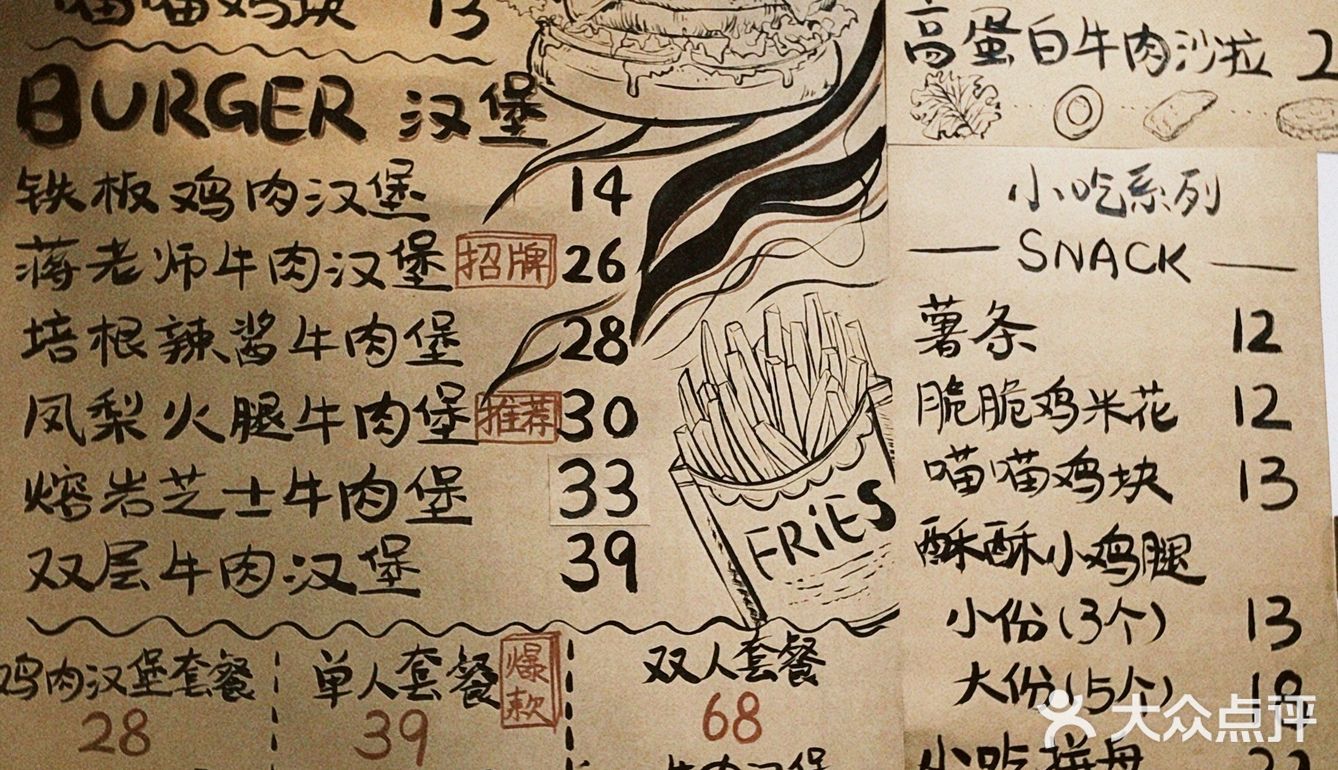 喵喵鸡块 13
BURGER 汉堡
铁板鸡肉汉堡 14
蒋老师牛肉汉堡 招牌 26
培根辣酱牛肉堡 28
凤梨火腿牛肉堡 推荐 30
熔岩芝士牛肉堡 33
双层牛肉汉堡 39
FRiES
鸡肉汉堡套餐
28
单人套餐 爆款
39
双人套餐
68
牛肉汉堡
高蛋白牛肉沙拉 2
小吃系列
SNACK
薯条 12
脆脆鸡米花 12
喵喵鸡块 13
酥酥小鸡腿
小份(3个) 13
大份(5个)
小吃拼盘
大众点评